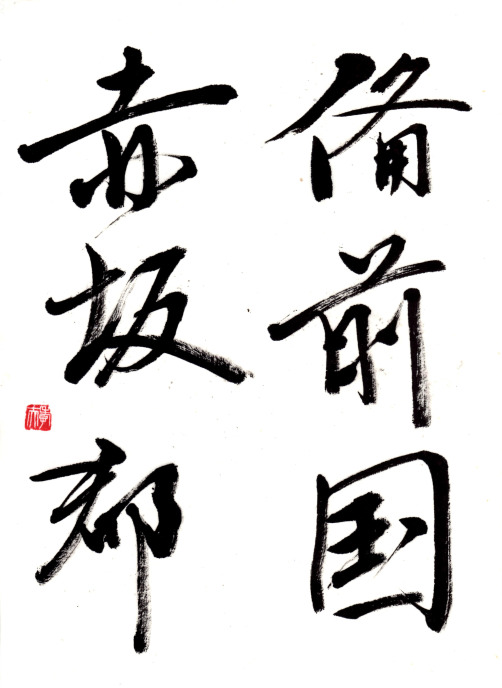 备前国
赤坂郡